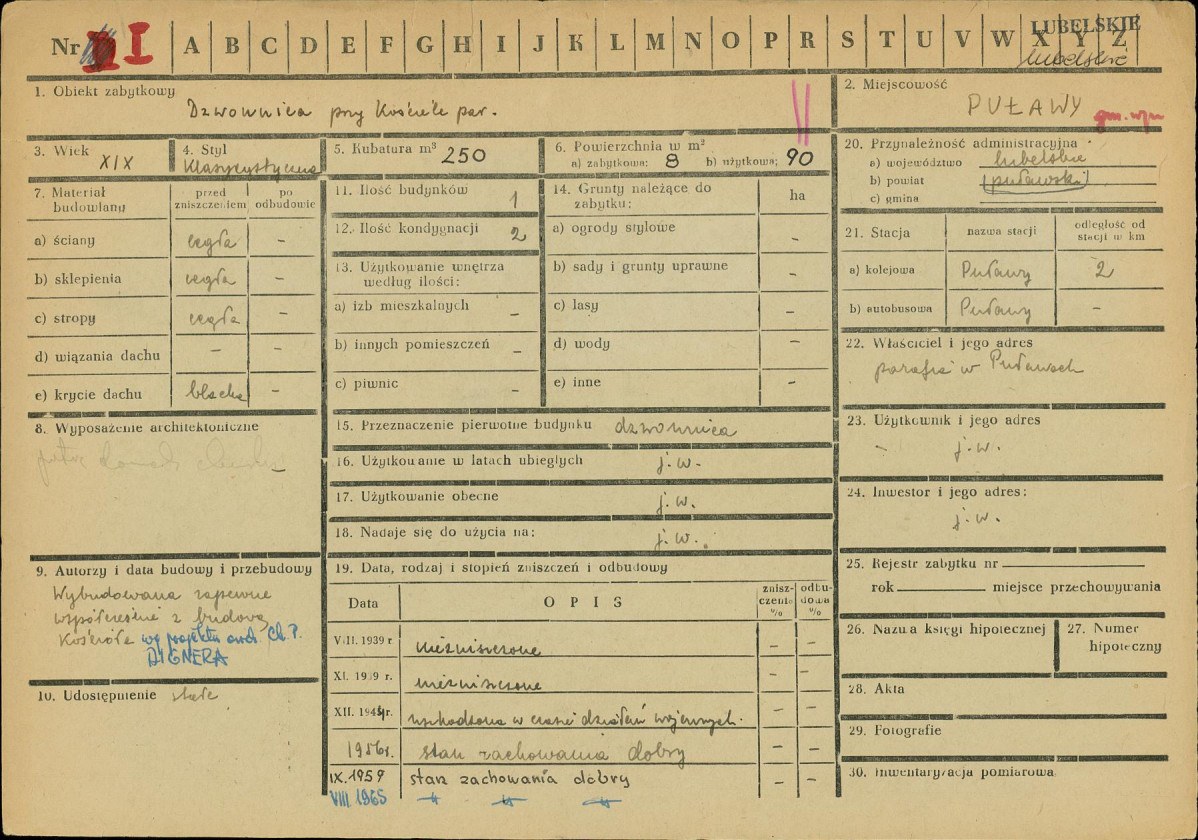 Nr I A B C D E F G H I J K L M N O P R S T U V W X Y Z
LUBELSKIE
lubelskie
1. Obiekt zabytkowy
Dzwonnica przy Kościele par.
2. Miejscowość
PUŁAWY
3. Wiek XIX
4. Styl
Klasycystyczna
5. Kubatura m³ 250
6. Powierzchnia w m²
a) zabytkowa; 8 b) użytkowa; 90
7. Materiał budowlany
przed zniszczeniem
po odbudowie
a) ściany cegła –
b) sklepienia cegła –
c) stropy cegła –
d) wiązania dachu – –
e) krycie dachu blacha –
8. Wyposażenie architektoniczne
–
9. Autorzy i data budowy i przebudowy
Wybudowana zapewne
współcześnie z budową
Kościoła wg projektu arch. Ch. P.
AIGNERA
10. Udostępnienie stałe
11. Ilość budynków 1
12. Ilość kondygnacji 2
13. Użytkowanie wnętrza
według ilości:
a) izb mieszkalnych –
b) innych pomieszczeń –
c) piwnic –
14. Grunty należące do
zabytku: ha
a) ogrody stylowe –
b) sady i grunty uprawne –
c) lasy –
d) wody –
e) inne –
15. Przeznaczenie pierwotne budynku dzwonnica
16. Użytkowanie w latach ubiegłych j. w.
17. Użytkowanie obecne j. w.
18. Nadaje się do użycia na: j. w.
19. Data, rodzaj i stopień zniszczeń i odbudowy
Data OPIS zniszczenie % odbudowa %
VIII. 1939 r niezniszczone – –
XI. 1939 r. niezniszczone – –
XII. 1944 r. uszkodzona w czasie działań wojennych. – –
1956 r. stan zachowania dobry – –
IX. 1959 stan zachowania dobry – –
VIII 1965 –"– –"– –"–
20. Przynależność administracyjna
a) województwo lubelskie
b) powiat (puławski)
c) gmina
21. Stacja
nazwa stacji
odległość od
stacji w km
a) kolejowa Puławy 2
b) autobusowa Puławy –
22. Właściciel i jego adres
parafia w Puławach
23. Użytkownik i jego adres
– j. w.
24. Inwestor i jego adres:
j. w.
25. Rejestr zabytku nr
rok miejsce przechowywania
26. Nazwa księgi hipotecznej
27. Numer
hipoteczny
28. Akta
29. Fotografie
30. Inwentaryzacja pomiarowa